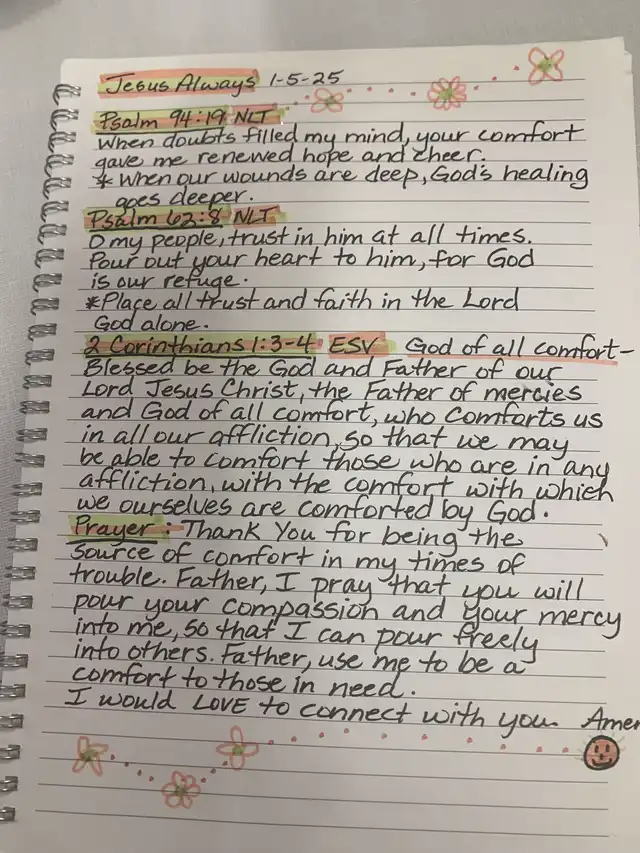 Jesus Always 1-5-25
Psalm 94:19 NLT
When doubts filled my mind, your comfort
gave me renewed hope and cheer.
* When our wounds are deep, God's healing
goes deeper.
Psalm 62:8 NLT
O my people, trust in him at all times.
Pour out your heart to him, for God
is our refuge.
*Place all trust and faith in the Lord
God alone.
2 Corinthians 1:3-4 ESV God of all comfort-
Blessed be the God and Father of our
Lord Jesus Christ, the Father of mercies
and God of all comfort, who comforts us
in all our affliction, so that we may
be able to comfort those who are in any
affliction, with the comfort with which
we ourselves are comforted by God.
Prayer: Thank You for being the
source of comfort in my times of
trouble. Father, I pray that you will
pour your compassion and your mercy
into me, so that I can pour freely
into others. Father, use me to be a
comfort to those in need.
I would LOVE to connect with you. Amen